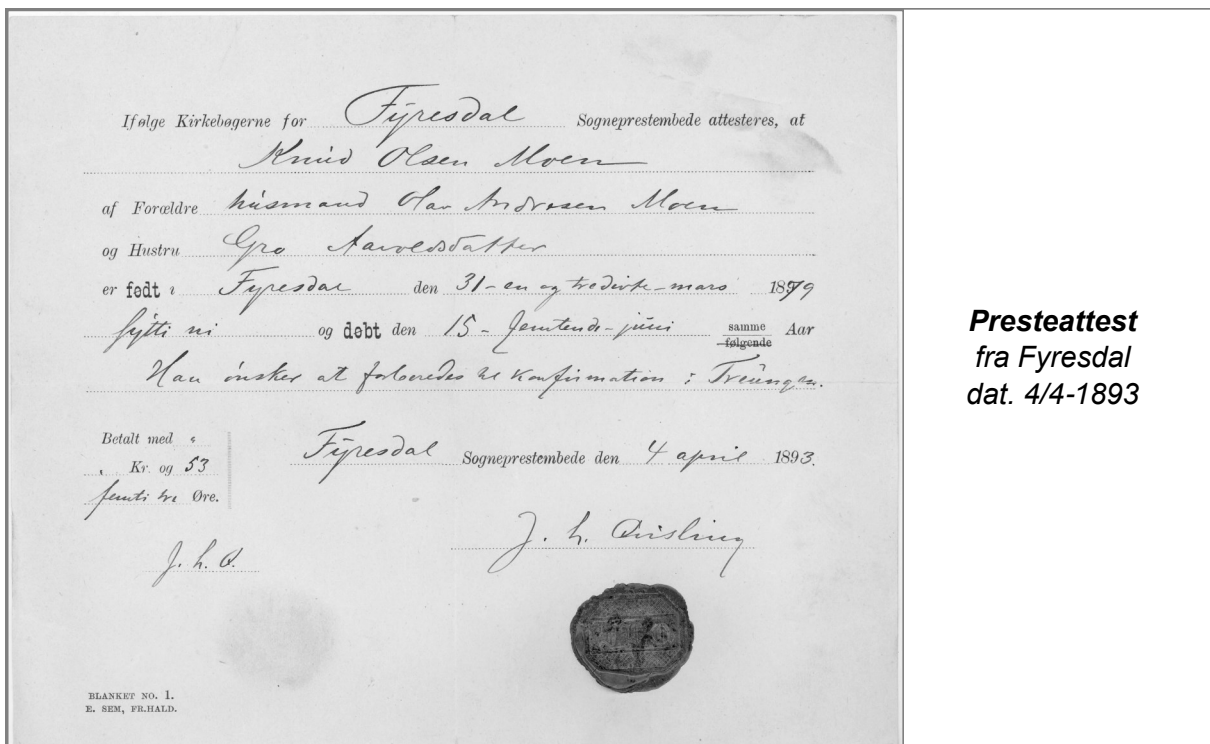 Ifølge Kirkebøgerne for Fyresdal Sogneprestembede attesteres, at
Knud Olsen Moen
af Forældre husmand Olav Andresen Moen
og Hustru Gro Aavoldsdatter
er født i Fyresdal den 31-en og tredivte-mars 1879
sytti ni og døbt den 15-femtende-juni samme følgende Aar
Han ønsker at forberedes til konfirmation i Treungen.
Betalt med "
" Kr. og 53
femti tre Øre.
Fyresdal Sogneprestembede den 4 april 1893.
J. L. Qvisling
J. L. Q.
BLANKET NO. 1.
E. SEM, FR.HALD.
Presteattest
fra Fyresdal
dat. 4/4-1893